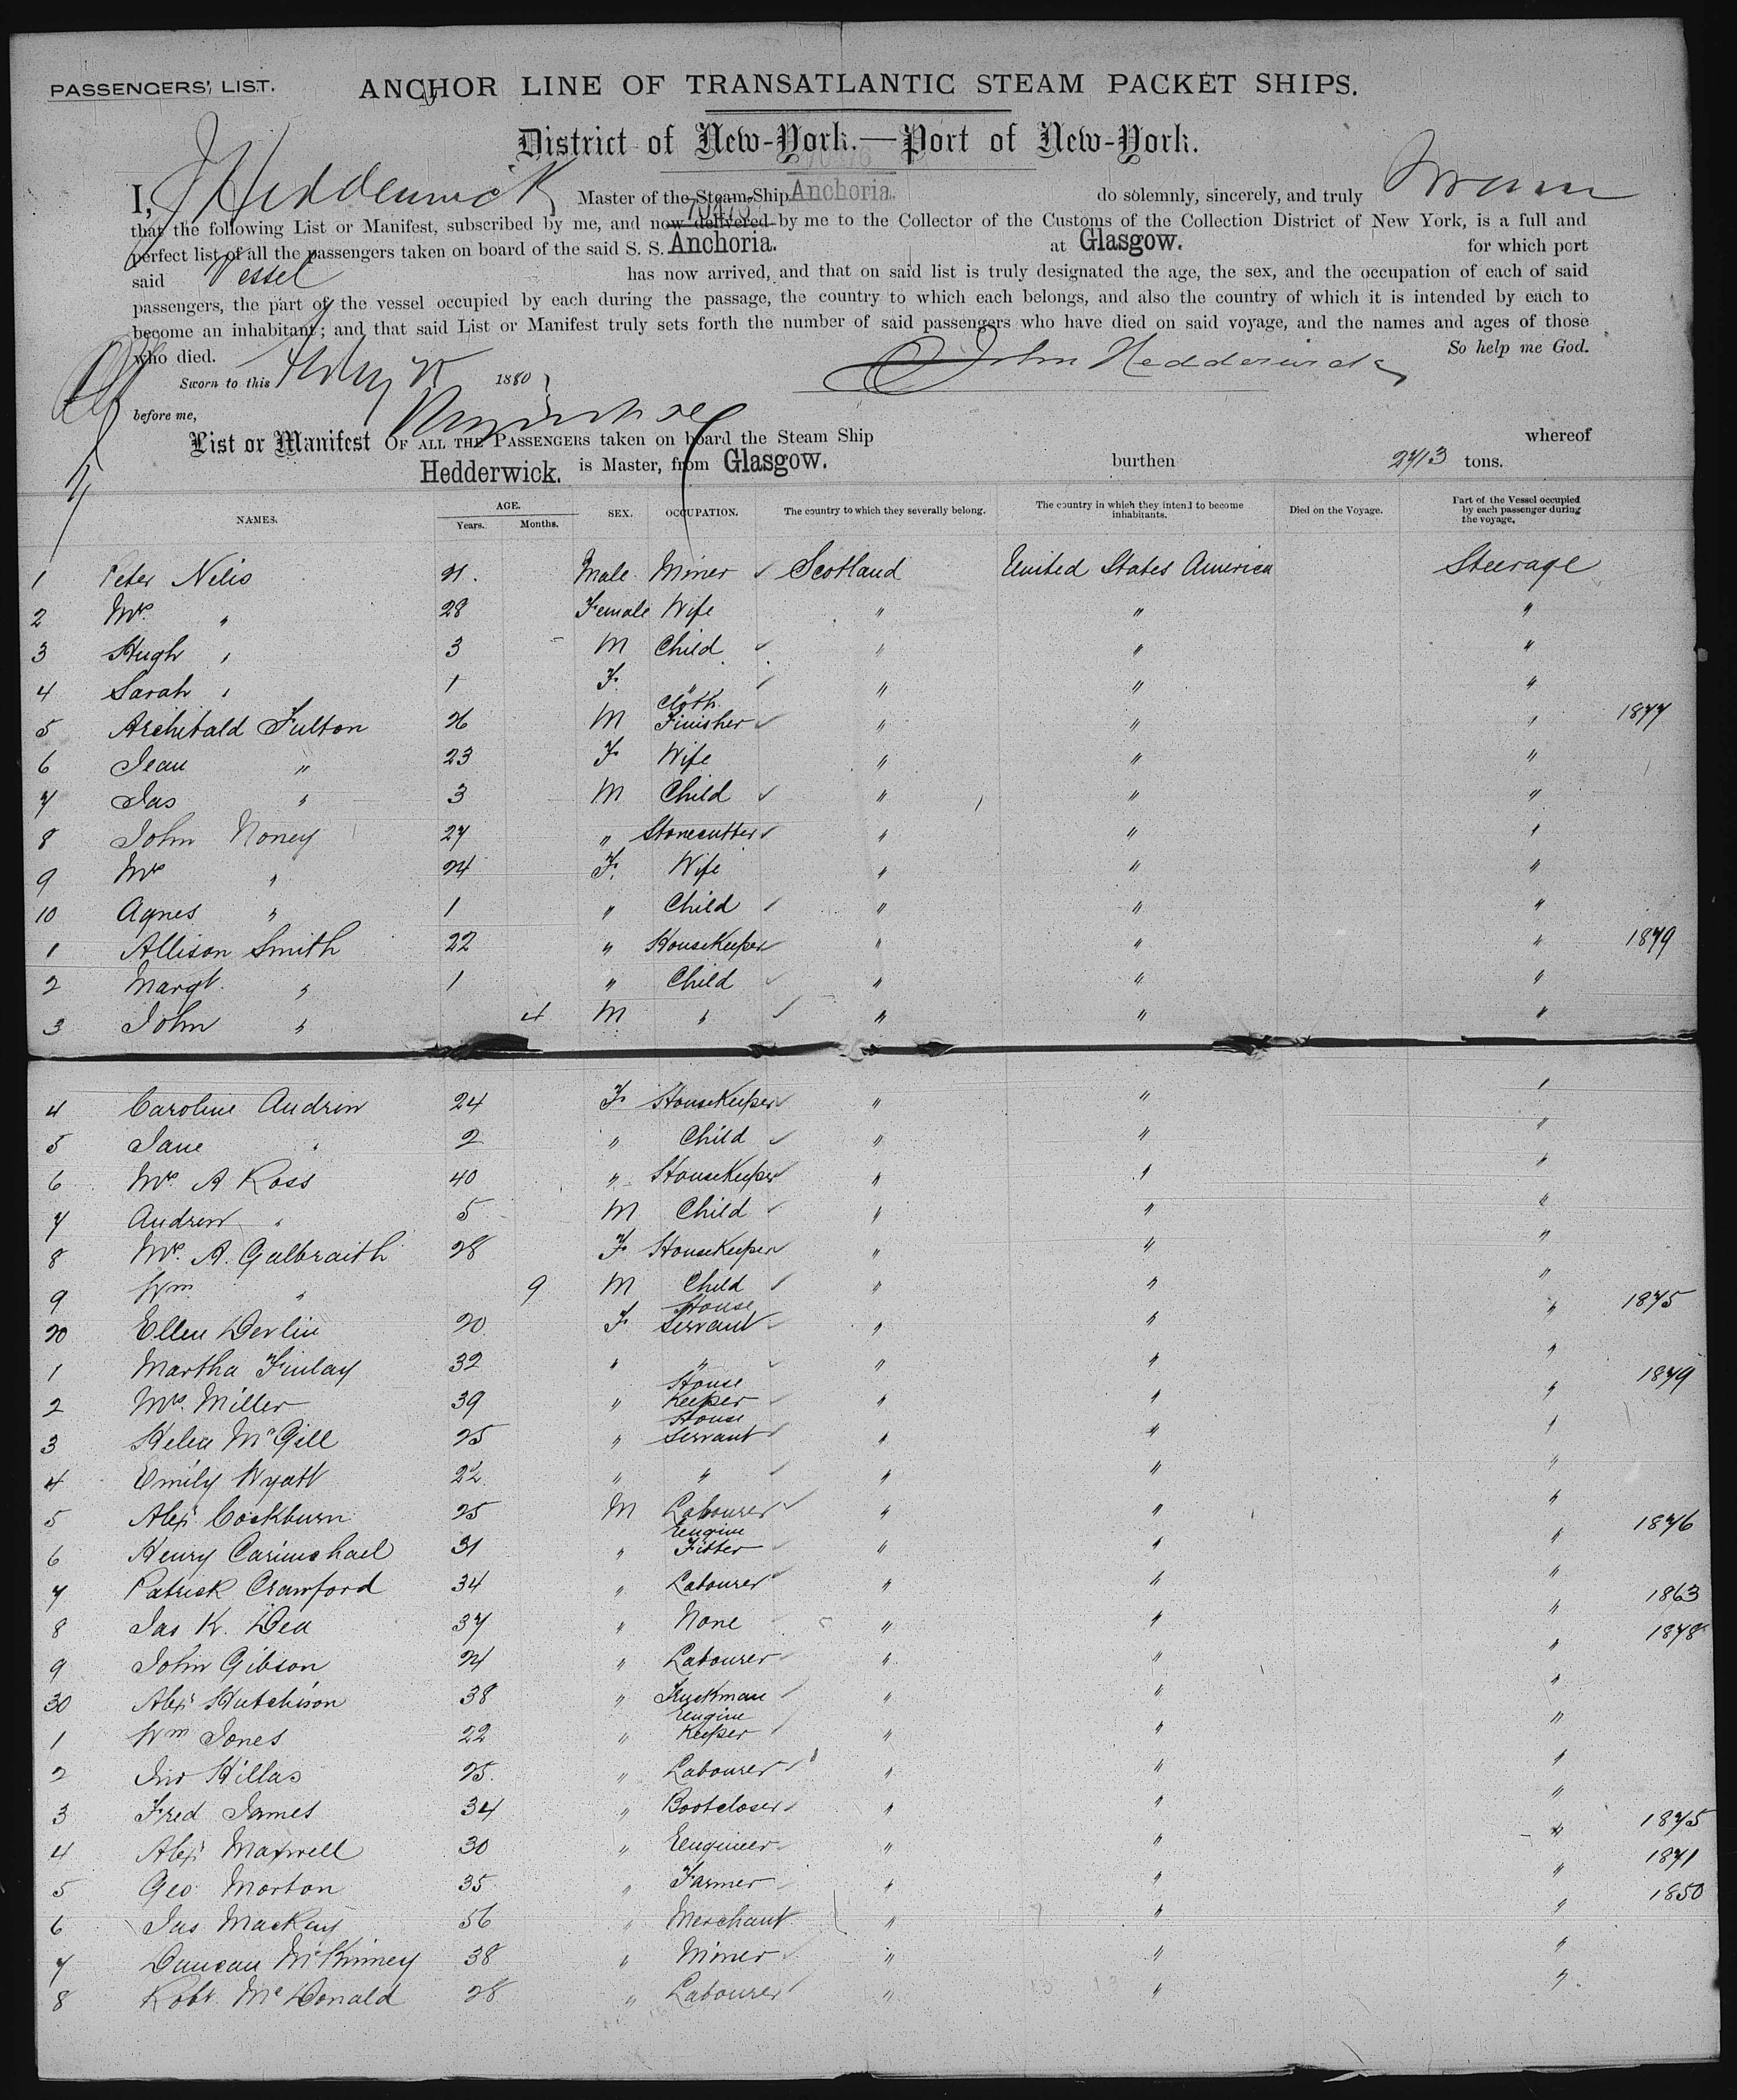 PASSENGERS' LIST. ANCHOR LINE OF TRANSATLANTIC STEAM PACKET SHIPS.
District of New-York.—Port of New-York.
I, J Hedderwick Master of the Steam-Ship Anchoria. do solemnly, sincerely, and truly swear
that the following List or Manifest, subscribed by me, and now delivered by me to the Collector of the Customs of the Collection District of New York, is a full and
perfect list of all the passengers taken on board of the said S. S. Anchoria. at Glasgow. for which port
said Vessel has now arrived, and that on said list is truly designated the age, the sex, and the occupation of each of said
passengers, the part of the vessel occupied by each during the passage, the country to which each belongs, and also the country of which it is intended by each to
become an inhabitant; and that said List or Manifest truly sets forth the number of said passengers who have died on said voyage, and the names and ages of those
who died. So help me God.
Sworn to this 1880 John Hedderwick
before me,
List or Manifest OF ALL THE PASSENGERS taken on board the Steam Ship whereof
Hedderwick. is Master, from Glasgow. burthen 2713 tons.
NAMES. AGE. Years. Months. SEX. OCCUPATION. The country to which they severally belong. The country in which they intend to become inhabitants. Died on the Voyage. Part of the Vessel occupied by each passenger during the voyage.
1 Peter Nelis 31. Male Miner Scotland United States America Steerage
2 Mrs " 28 Female Wife " " "
3 Hugh " 3 M Child " " "
4 Sarah " 1 F. " " " "
5 Archibald Fulton 26 M Cloth Finisher " " " 1877
6 Jean " 23 F Wife " " "
7 Jas " 3 M Child " " "
8 John Noney 27 " Stonecutter " " "
9 Mrs " 24 F. Wife " " "
10 Agnes " 1 " Child " " "
1 Allison Smith 22 " HouseKeeper " " " 1879
2 Margt. " 1 " Child " " "
3 John " 4 M " " " "
4 Caroline Audrin 24 F HouseKeeper " " "
5 Jane " 2 " Child " " "
6 Mrs. A Ross 40 " HouseKeeper " " "
7 Andrew " 5 M Child " " "
8 Mrs. A. Galbraith 28 F HouseKeeper " " "
9 Wm " 9 M Child " " "
20 Ellen Devlin 20 F House Servant " " " 1875
1 Martha Finlay 32 " " " " "
2 Mrs. Miller 39 " House Keeper " " " 1879
3 Helen McGill 25 " House Servant " " "
4 Emily Wyatt 22 " " " " "
5 Alexr Cockburn 25 M Labourer " " "
6 Henry Carimchael 31 " Engine Fitter " " " 1876
7 Patrick Crawford 34 " Labourer " " "
8 Jas K. Dea 37 " None " " " 1863
9 John Gibson 24 " Labourer " " " 1878
30 Alexr Hutchison 38 " Truckman " " "
1 Wm Jones 22 " Engine Keeper " " "
2 Jno Hillas 25. " Labourer " " "
3 Fred James 34 " Bootcloser " " "
4 Alexr Maxwell 30 " Engineer " " " 1875
5 Geo Morton 35 " Farmer " " " 1871
6 Jas Mackay 56 " Merchant " " " 1850
7 Duncan McKinney 38 " Miner " " "
8 Robt. McDonald 28 " Labourer " " "